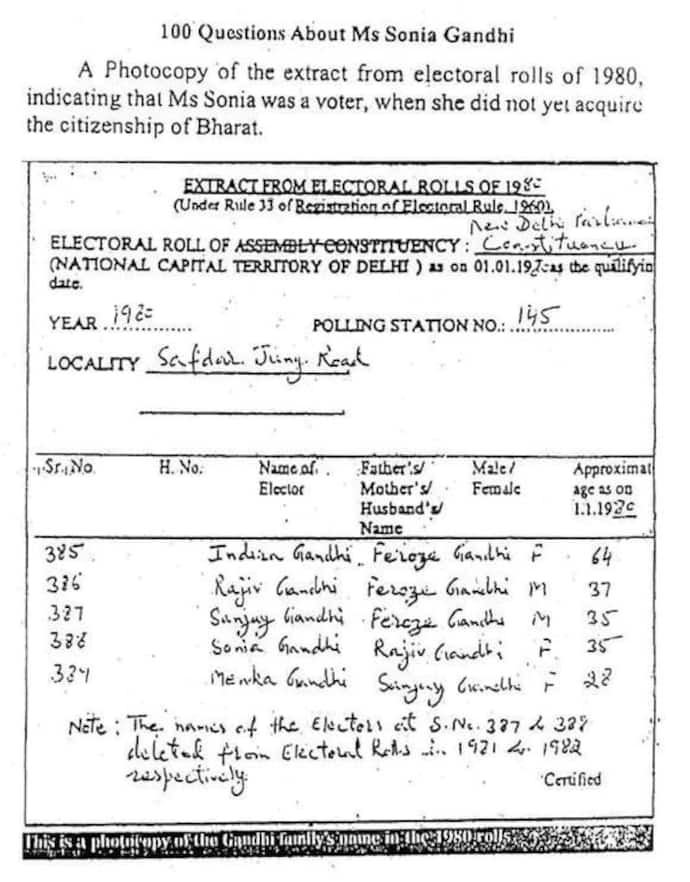 100 Questions About Ms Sonia Gandhi
A Photocopy of the extract from electoral rolls of 1980,
indicating that Ms Sonia was a voter, when she did not yet acquire
the citizenship of Bharat.
EXTRACT FROM ELECTORAL ROLLS OF 1980
(Under Rule 33 of Registration of Electoral Rule, 1960)
New Delhi Parliamen
ELECTORAL ROLL OF ASSEMBLY CONSTITUENCY : Constituency
(NATIONAL CAPITAL TERRITORY OF DELHI ) as on 01.01.19 as the qualifyin
date.
YEAR 1980 POLLING STATION NO.: 145
LOCALITY Safdar Jung Road
Sr. No. H. No. Name of Father's/ Male/ Approximat
Elector Mother's/ Female age as on
Husband's/ 1.1.1980
Name
385 Indira Gandhi Feroze Gandhi F 64
386 Rajiv Gandhi Feroze Gandhi M 37
387 Sanjay Gandhi Feroze Gandhi M 35
388 Sonia Gandhi Rajiv Gandhi F 35
389 Menka Gandhi Sanjay Gandhi F 28
Note : The names of the Electors at S.No. 387 &
deleted from Electoral Rolls in 1981 & 1982
respectively.
Certified
This is a photocopy of the Gandhi family's name in the 1980 rolls